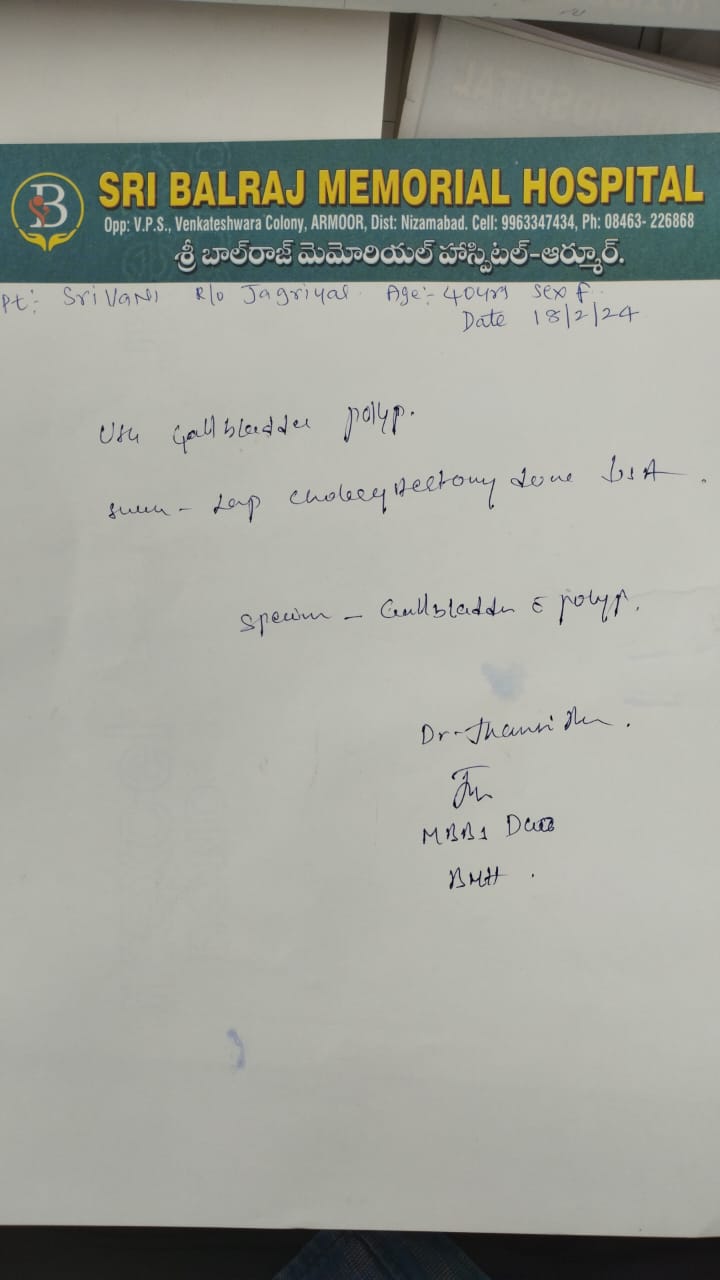 SRI BALRAJ MEMORIAL HOSPITAL
Opp: V.P.S., Venkateshwara Colony, ARMOOR, Dist: Nizamabad. Cell: 9963347434, Ph: 08463- 226868
శ్రీ బాల్‌రాజ్ మెమోరియల్ హాస్పిటల్-ఆర్మూర్.
Pt:- Sri Vani R/o Jagriyal Age:- 40yrs Sex f
Date 18/2/24
USG Gallbladder polyp.
Lap cholecystectomy done
Gallbladder c̄ polyp.
Dr.
MBBS
BMH.